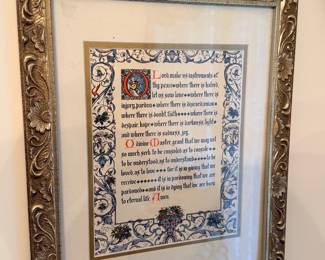 O Lord make us instruments of
thy peace where there is hatred
let us sow love where there is
injury, pardon where there is discord, union
where there is doubt, faith where there is
despair, hope where there is darkness, light
and where there is sadness, joy.
O Divine Master, grant that we may not
so much seek to be consoled, as to console
to be understood, as to understand to be
loved, as to love for it is in giving that we
receive it is in pardoning that we are
pardoned and it is in dying that we are born
to eternal life. Amen.